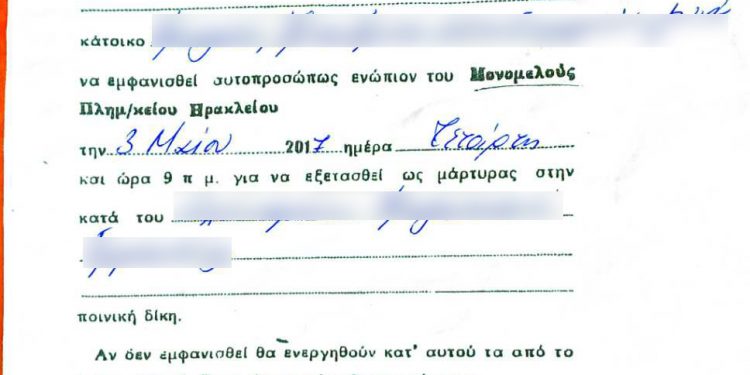 κάτοικο
να εμφανισθεί αυτοπροσώπως ενώπιον του Μονομελούς
Πλημ/κείου Ηρακλείου
την 3 Μαΐου 2017 ημέρα Τετάρτη
και ώρα 9 π μ. για να εξετασθεί ως μάρτυρας στην
κατά του
ποινική δίκη.
Αν δεν εμφανισθεί θα ενεργηθούν κατ' αυτού τα από το